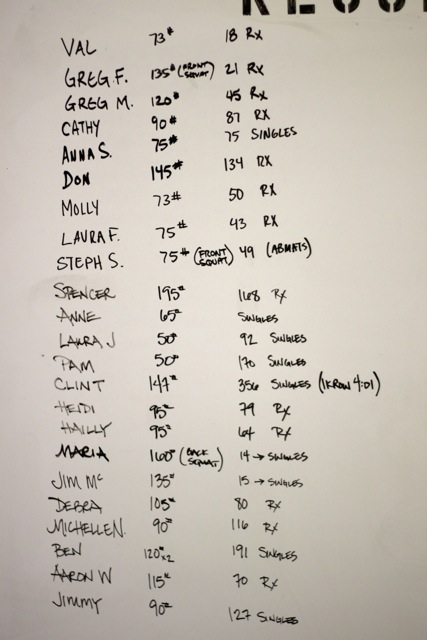 VAL 73# 18 Rx
GREG F. 135# (FRONT SQUAT) 21 Rx
GREG M. 120# 45 Rx
CATHY 90# 87 Rx
ANNA S. 75# 75 SINGLES
DON 145# 134 Rx
MOLLY 73# 50 Rx
LAURA F. 75# 43 Rx
STEPH S. 75# (FRONT SQUAT) 49 (ABMATS)
SPENCER 195# 168 Rx
ANNE 65# SINGLES
LAURA J 50# 92 SINGLES
PAM 50# 170 SINGLES
CLINT 147# 356 SINGLES (1KROW 4:01)
HEIDI 95# 79 Rx
HAILLY 95# 64 Rx
MARIA 160# (BACK SQUAT) 14 → SINGLES
JIM Mc 135# 15 → SINGLES
DEBRA 105# 80 Rx
MICHELLE N. 90# 116 Rx
BEN 120#x2 191 SINGLES
AARON W 115# 70 Rx
Jimmy 90# 127 SINGLES